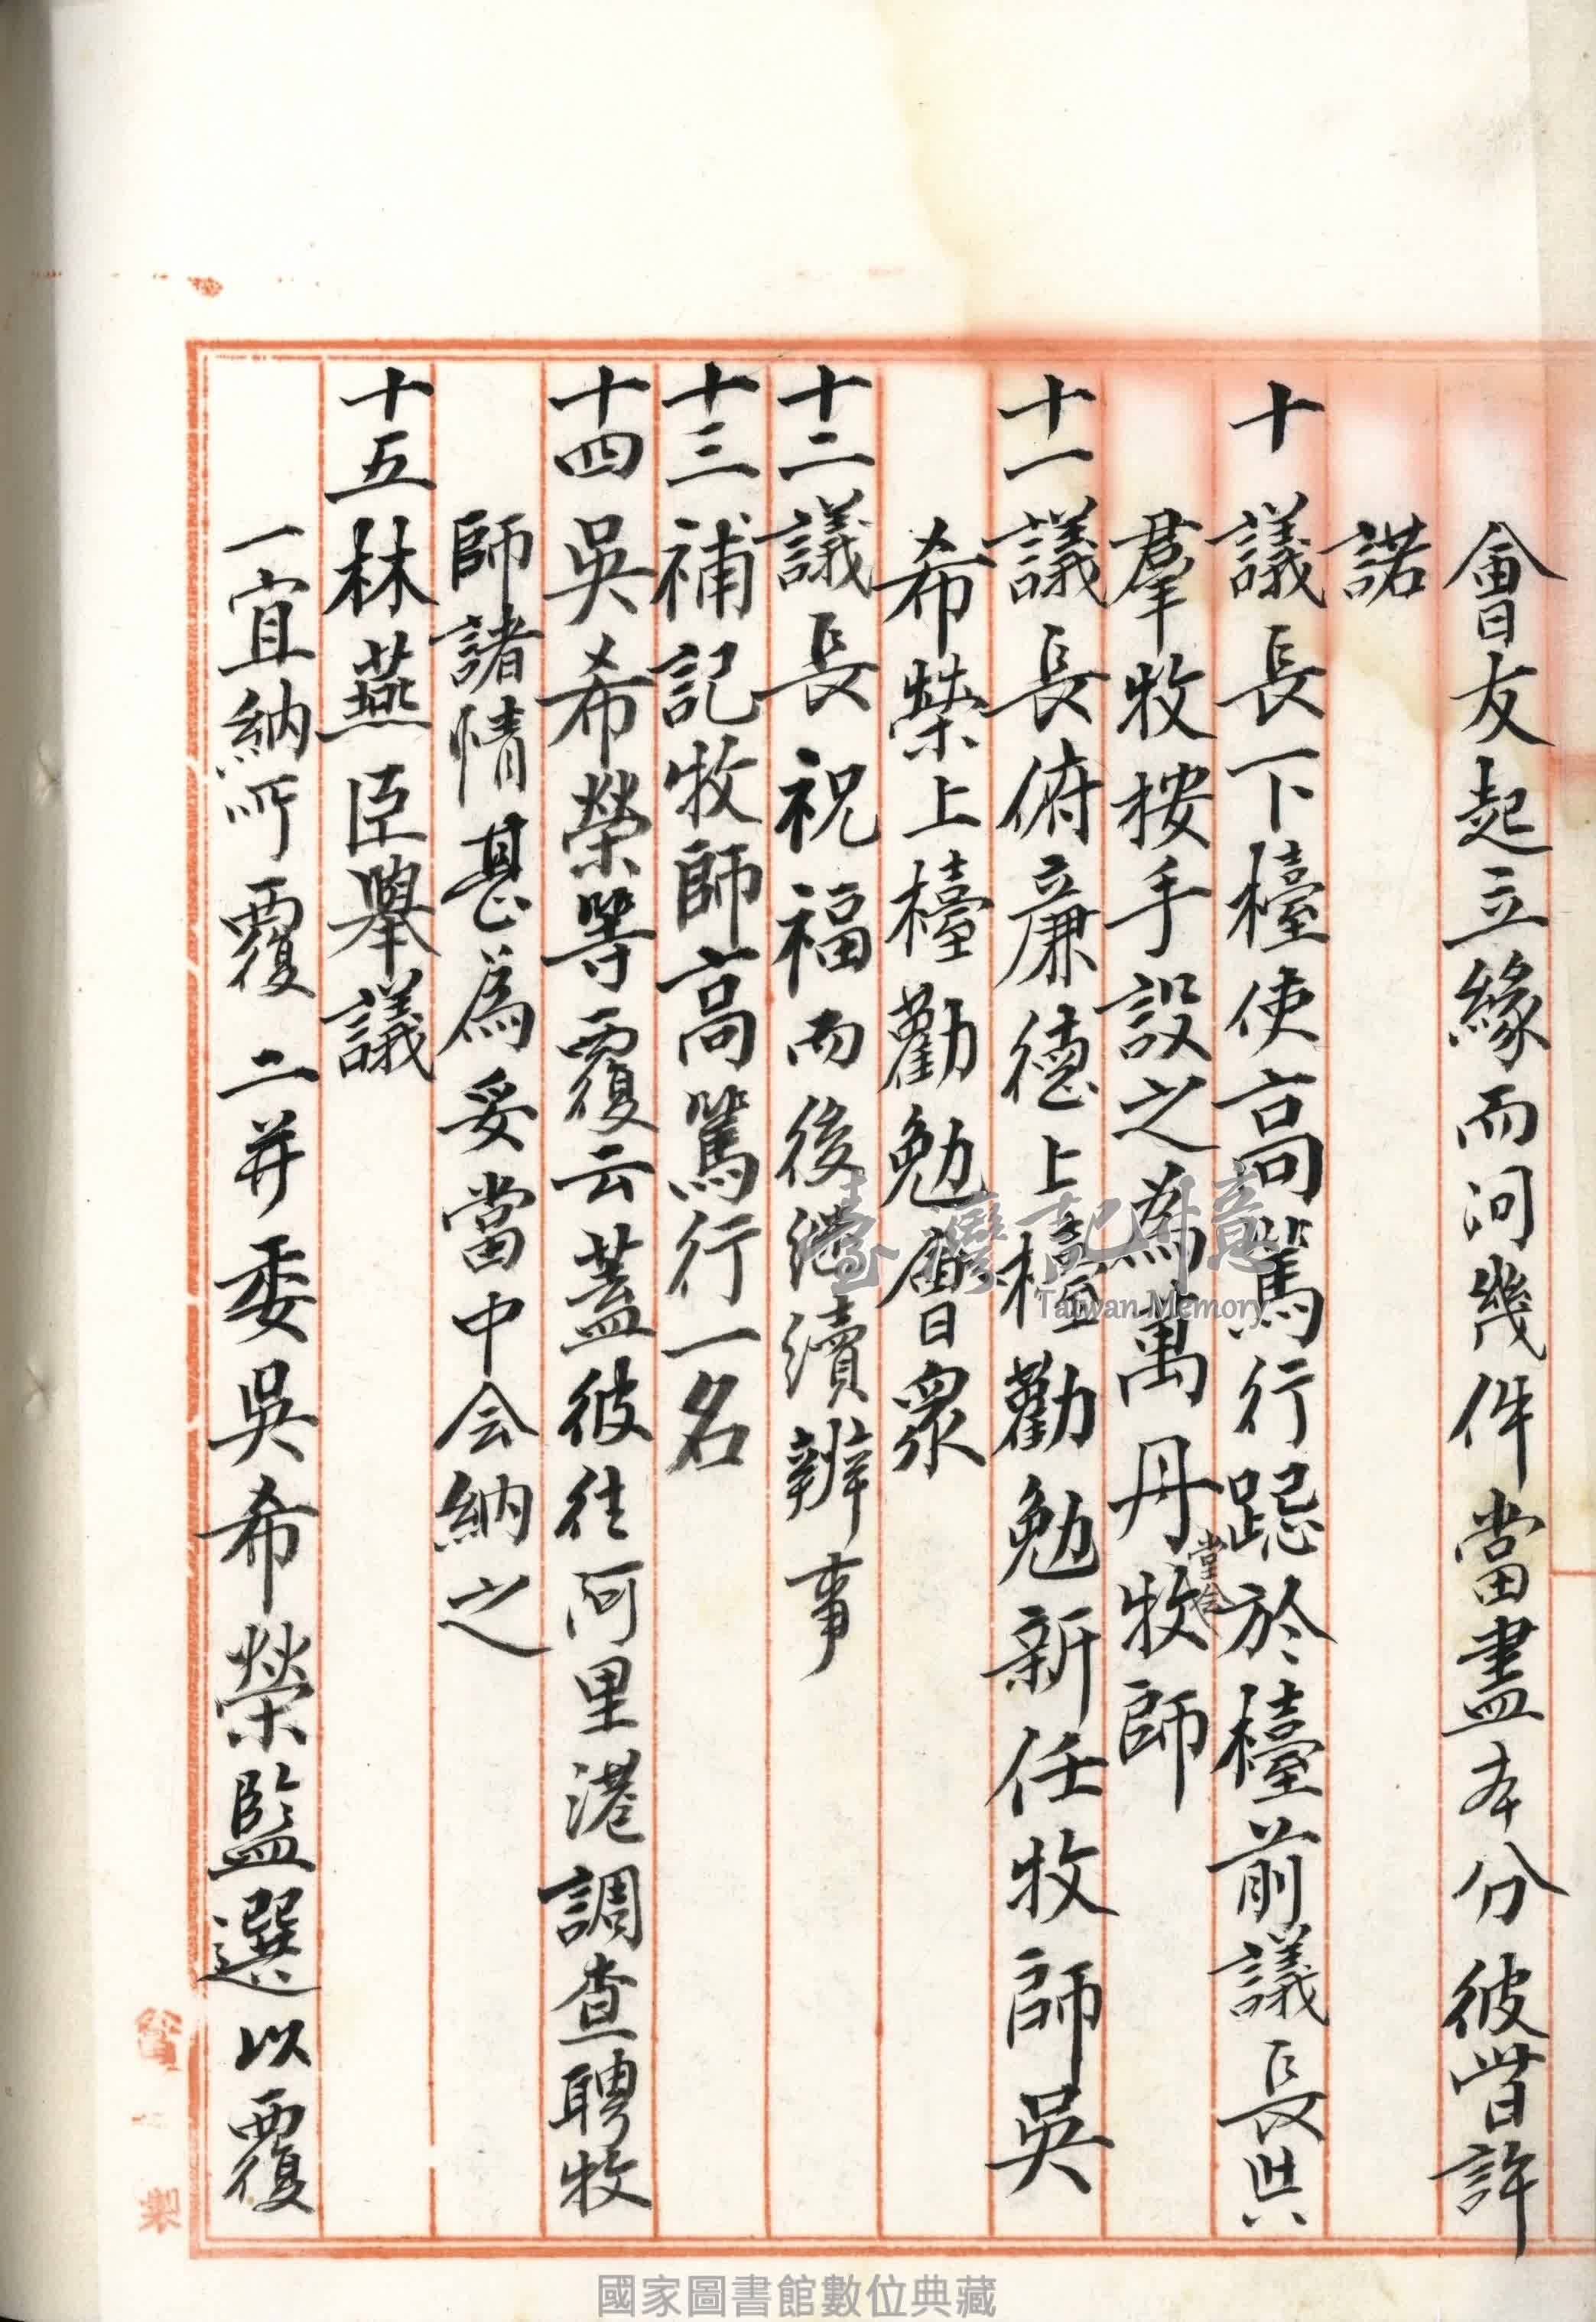 會友起立緣而问幾件當盡本分彼皆許
諾
十 議長下檯使高篤行跽於檯前議長與
羣牧按手設之為萬丹堂会牧師
十一議長俯廉德上檯勸勉新任牧師吳
希榮上檯勸勉會眾
十二議長祝福而後继續辦事
十三補記牧師高篤行一名
十四吳希榮等覆云蓋彼往阿里港調查聘牧
師諸情甚為妥當中会納之
十五林燕臣舉議
一宜納所覆 二并委吳希榮監選以覆
臺灣記憶
Taiwan Memory
國家圖書館數位典藏